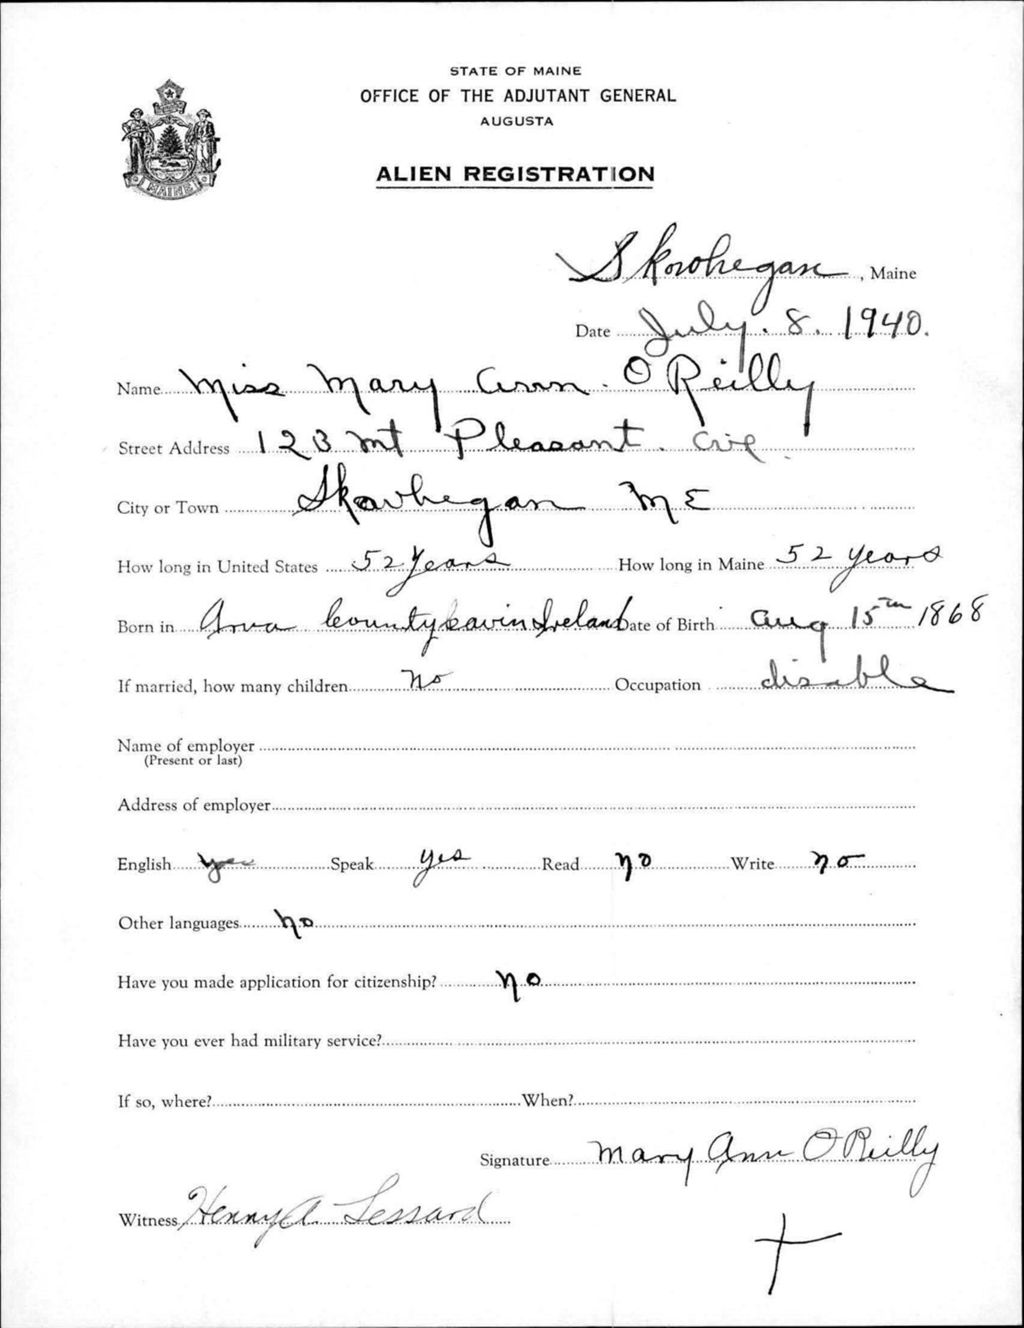 STATE OF MAINE
OFFICE OF THE ADJUTANT GENERAL
AUGUSTA
ALIEN REGISTRATION
MAINE
Skowhegan, Maine
Date July. 8. 1940.
Name Miss Mary Ann. O'Reilly
Street Address 123 Mt Pleasant. Ave.
City or Town Skowhegan ME
How long in United States 52 Years How long in Maine 52 years
Born in Arva County Cavin Ireland Date of Birth Aug 15th 1868
If married, how many children No Occupation disable
Name of employer
(Present or last)
Address of employer
English yes Speak yes Read no Write no
Other languages no
Have you made application for citizenship? no
Have you ever had military service?
If so, where? When?
Signature Mary Ann O Reilly
Witness Henry A. Lessard